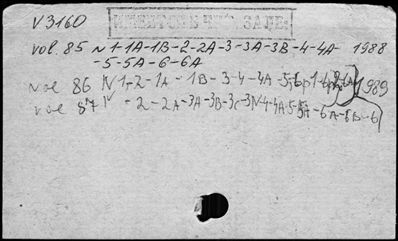 V3160
vol. 85 N 1-1A-1B-2-2A-3-3A-3B-4-4A- 1988
-5-5A-6-6A
vol 86 N 1-2-1A-1B-3-4-4A-5, 1989
vol 87 N -2-2A-3A-3B-3C-3N-4-4A-5-5A-6A-6B-6